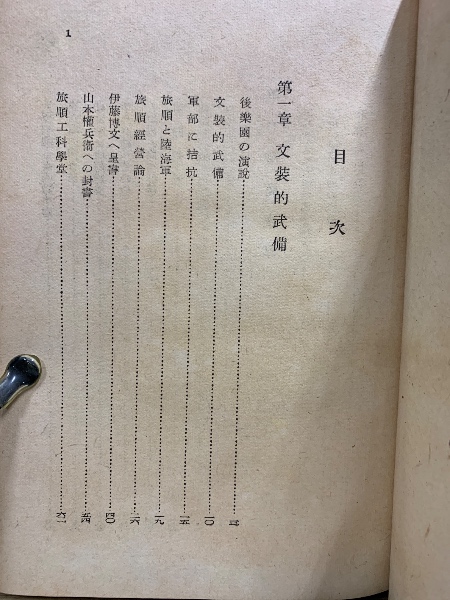 目次
第一章 文裝的武備
後樂園の演說……三
文裝的武備……一〇
軍部に拮抗……一五
旅順と陸海軍……一九
旅順經營論……二六
伊藤博文へ呈書……四〇
山本權兵衞への封書……五四
旅順工科學堂……六一
1